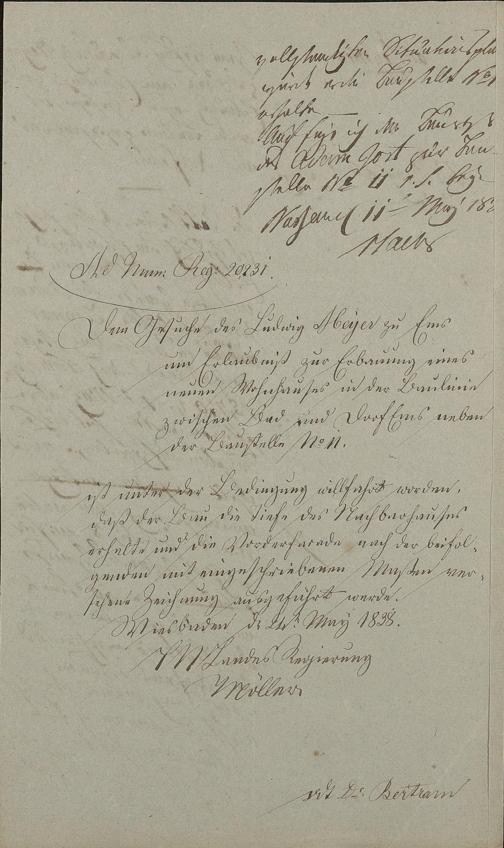 vollständigen Situationsplan
erhalte
Auch füge ich den
des Adam Gost zur Bau
stelle No 11 r. S. bey.
Nassau 11 May 183
Haebs
Ad Num: Reg: 20231.
Dem Gesuche des Ludwig Meyer zu Ems
um Erlaubniß zur Erbauung eines
neuen Wohnhauses in der Baulinie
zwischen Bad und Dorf Ems neben
der Baustelle No 11.
ist unter der Bedingung willfahrt worden,
daß der Bau die Tiefe des Nachbarhauses
erhalte und die Vorderfacade nach der beifol-
genden mit eingeschriebenen Maßen ver-
sehene Zeichnung ausgeführt werde.
Wiesbaden d. May 1838.
Landes Regierung
Möller
vdt Dr. Bertram